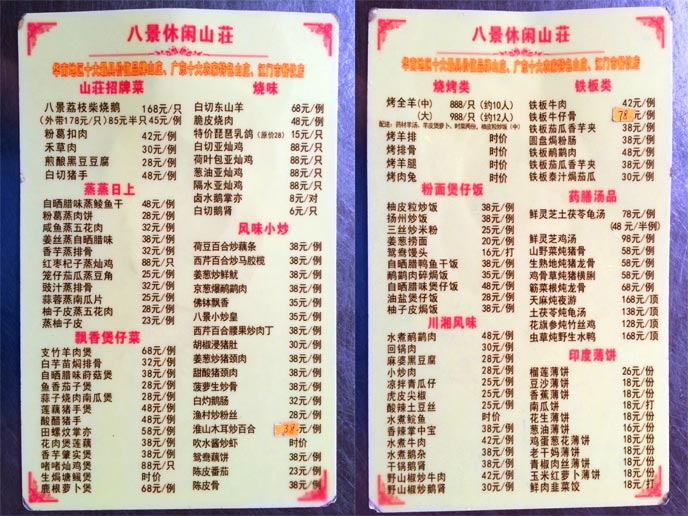 八景休闲山莊
华南地区十大最具价值品牌山庄、广东十大农家特色山庄、江门市餐饮店
山莊招牌菜
八景荔枝柴烧鹅 168元/只
(外带178元/只)85元半只 45元/例
粉葛扣肉 42元/例
禾草肉 30元/例
煎酿黑豆豆腐 28元/例
白切猪手 48元/例
蒸蒸日上
自晒腊味蒸鲮鱼干 48元/例
粉葛蒸肉饼 28元/例
咸鱼蒸五花肉 32元/例
姜丝蒸自晒腊味 38元/例
香芋蒸排骨 32元/例
红枣杞子蒸灿鸡 88元/只
笼仔茄瓜蒸豆角 25元/例
豉汁蒸排骨 32元/例
蒜蓉蒸南瓜片 25元/例
柚子皮蒸五花肉 28元/例
蒸柚子皮 23元/例
飘香煲仔菜
支竹羊肉煲 68元/例
白芋苗焗排骨 32元/例
自晒腊味蔚菇煲 38元/例
鱼香茄子煲 28元/例
蒜子烧肉南瓜煲 28元/例
莲藕猪手煲 48元/例
酸醋猪手 48元/例
田螺炆掌亦 58元/例
花肉煲莲藕 38元/例
香芋肇实煲 38元/例
啫啫灿鸡煲 88元/只
生焗塘鲺煲 时价
鹿根萝卜煲 68元/例
烧味
白切东山羊 68元/例
脆皮烧肉 48元/例
特价琵琶乳鸽(原价28) 15元/只
白切亚灿鸡 88元/只
荷叶包亚灿鸡 88元/只
葱油亚灿鸡 88元/只
隔水亚灿鸡 88元/只
卤水鹅掌亦 8元/对
白切鹅肾 6元/只
风味小炒
荷豆百合炒藕条 38元/例
西芹百合炒马胶榄 38元/例
姜葱炒鲜鱿 38元/例
京葱爆鹌鹑肉 38元/例
佛钵飘香 35元/例
八景小炒皇 35元/例
西芹百合腰果炒肉丁 38元/例
胡椒浸猪肚 30元/例
姜葱炒猪颈肉 38元/例
甜酸猪颈肉 38元/例
菠萝生炒骨 38元/例
白灼鹅肠 32元/例
渔村炒粉丝 28元/例
淮山木耳炒百合 38元/例
吹水酱炒虾 时价
鸳鸯藕饼 38元/例
陈皮番茄 23元/例
陈皮骨 38元/例
八景休闲山莊
华南地区十大最具价值品牌山庄、广东十大农家特色山庄、江门市餐饮店
烧烤类
烤全羊(中) 888/只(约10人)
(大) 988/只(约12人)
烤羊排 时价
烤排骨 时价
烤羊腿 时价
烤肉兔 时价
粉面煲仔饭
柚皮粒炒饭 38元/例
扬州炒饭 38元/例
三丝炒米粉 25元/例
姜葱捞面 20元/例
鸳鸯馒头 16元/打
自晒腊鸭鱼干饭 38元/例
鹌鹑肉碎焗饭 35元/例
自晒腊味煲仔饭 48元/例
油盐煲仔饭 28元/例
柚子皮焗饭 38元/例
川湘风味
水煮鹌鹑肉 48元/例
回锅肉 30元/例
麻婆黑豆腐 28元/例
小炒肉 28元/例
凉拌青瓜仔 25元/例
虎皮尖椒 25元/例
酸辣土豆丝 25元/例
水煮鲩鱼 时价
香辣掌中宝 38元/例
水煮牛肉 42元/例
水煮鹅杂 38元/例
干锅鹅肾 38元/例
野山椒炒牛肉 42元/例
野山椒炒鹅肾 30元/例
铁板类
铁板牛肉 42元/例
铁板牛仔骨 78元/例
铁板茄瓜香芋夹 38元/例
圆盘焗粉肠 38元/例
铁板鹌鹑肉 48元/例
铁板茄瓜香芋夹 38元/例
铁板泰汁焗茄瓜 30元/例
药膳汤品
鲜灵芝土茯苓龟汤 78元/例
(48元/半例)
鲜灵芝鸡汤 98元/例
山野菜炖猪骨 58元/例
生熟地炖猪龙骨 58元/例
鸡骨草炖猪横脷 58元/例
筋菜根炖龙骨 68元/例
天麻炖夜游 168元/顶
土茯苓炖龟汤 138元/顶
花旗参炖竹丝鸡 128元/顶
虫草炖野生水鸭 168元/顶
印度薄饼
榴莲薄饼 26元/份
豆沙薄饼 18元/份
香蕉薄饼 18元/份
南瓜饼 18元/打
花生薄饼 18元/份
葱油薄饼 16元/份
鸡蛋葱花薄饼 18元/份
老干妈薄饼 18元/份
青椒肉丝薄饼 18元/份
玉米红萝卜薄饼 18元/份
鲜肉韭菜饺 18元/打